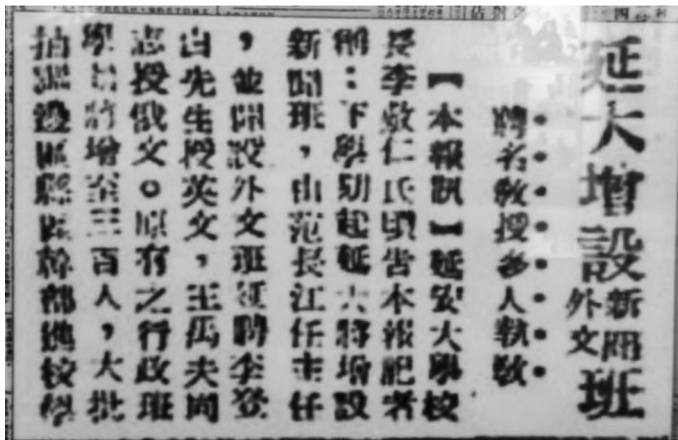 延大增設新聞外文班
聘名教授多人執教
【本報訊】延安大學校
長李敷仁氏頃告本報記者
稱：下學期起延大將增設
新聞班，由范長江任主任
，並開設外文班延聘李登
白先生授英文，王禹夫同
志授俄文。原有之行政班
學員將增至三百人，大批
抽調邊區縣區幹部進校學